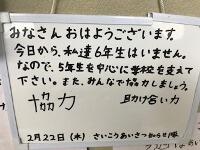 みなさんおはようございます。
今日から、私達6年生はいません。
なので、5年生を中心に学校を支えて
下さい。また、みんなで協力しましょう。
協力 助け合い力
2月22日(木) さいこうあいさつ知らせ隊